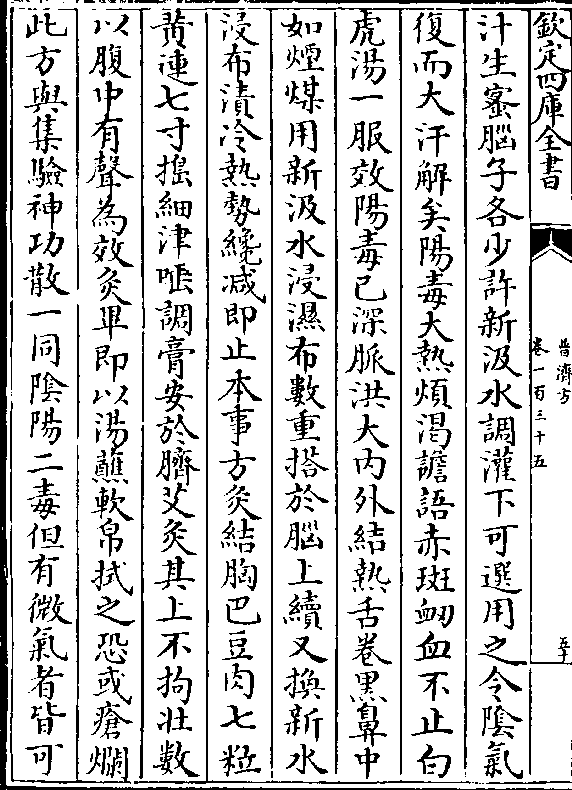 欽定四庫全書
普濟方
卷一百三十五
汁生蜜腦子各少許新汲水調灌下可選用之令陰氣
復而大汗解矣陽毒大熱煩渴譫語赤斑衂血不止白
虎湯一服效陽毒已深脈洪大内外結熱舌卷黒鼻中
如煙煤用新汲水浸濕布數重搭於腦上續又換新水
浸布漬冷熱勢纔减即止本事方灸結胸巴豆肉七粒
黄連七寸搗細津唾調膏安於臍艾灸其上不拘壯數
以腹中有聲為效灸畢即以湯蘸軟帛拭之恐或瘡爛
此方與集驗神功散一同陰陽二毒但有微氣者皆可